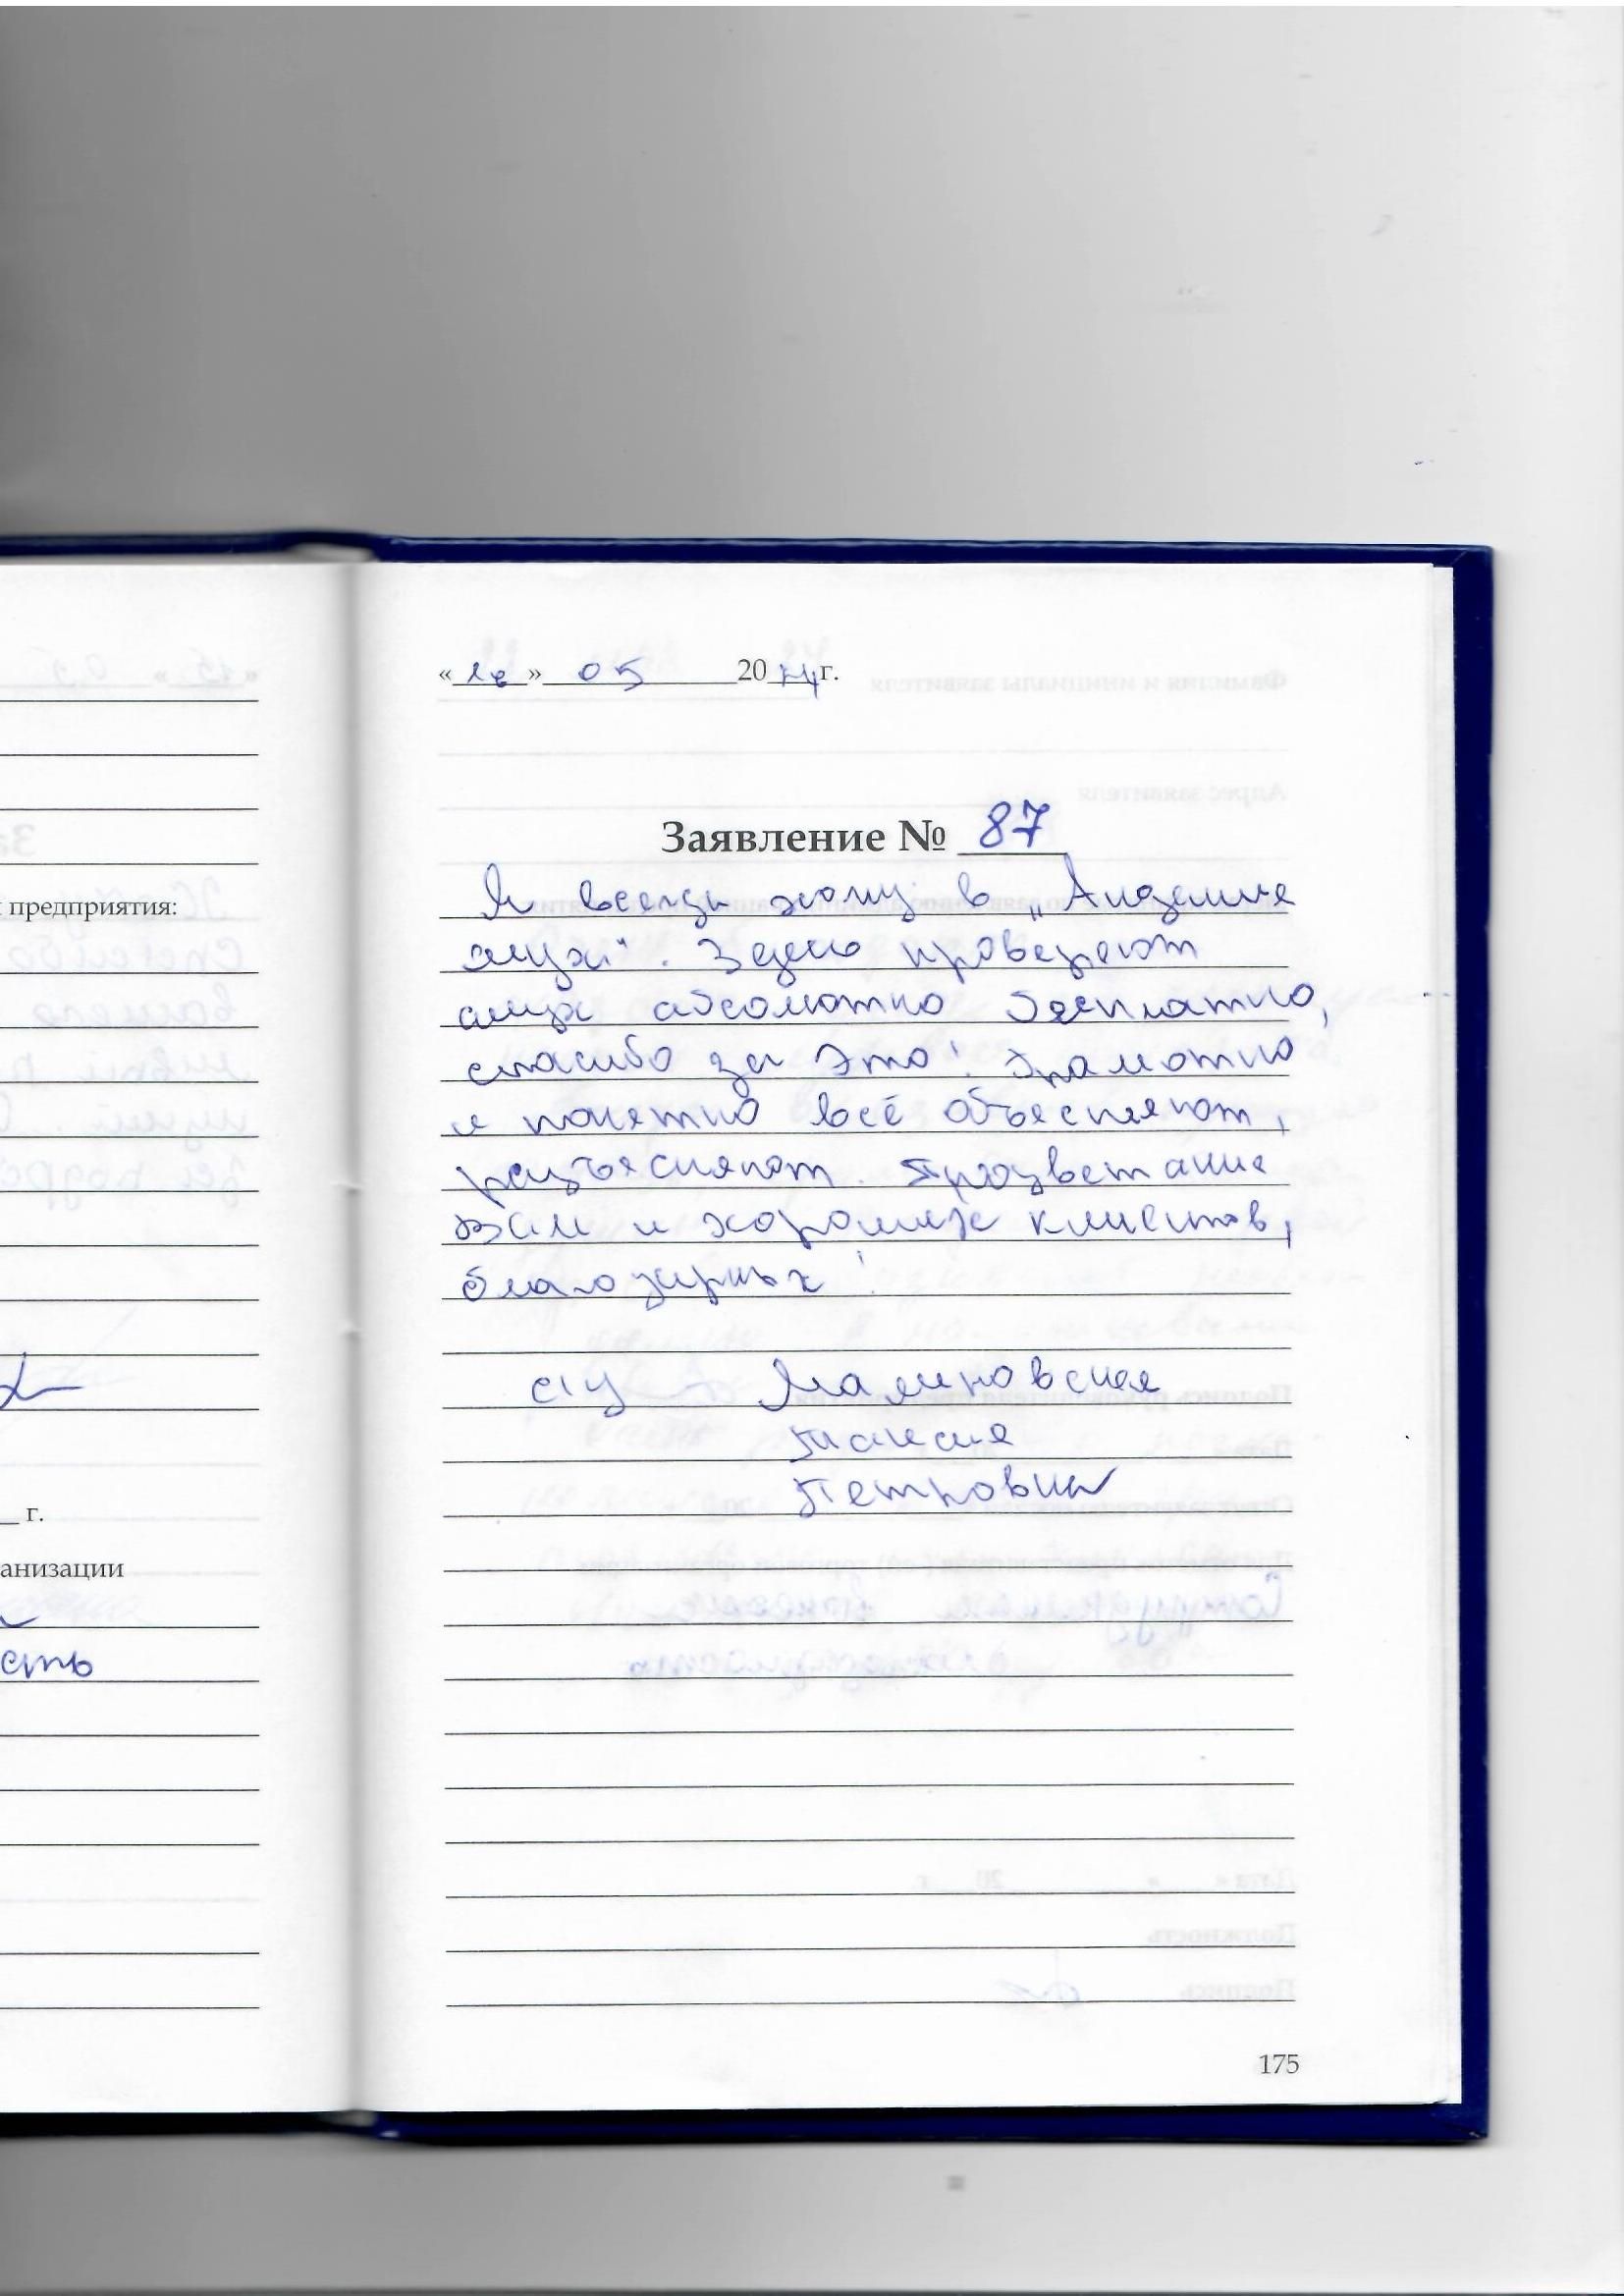 предприятия:
г.
анизации
сть
« 16 » 05 20 24 г.
Заявление № 87
Я всегда хожу в „Академие
слуха“. Здесь проверяют
слух абсолютно бесплатно,
спасибо за это! Грамотно
и понятно всё объесняют,
разъясняют. Процветание
Вам и хороших клиентов,
благодарных!
Малиновская
Таисия
Петровна
175